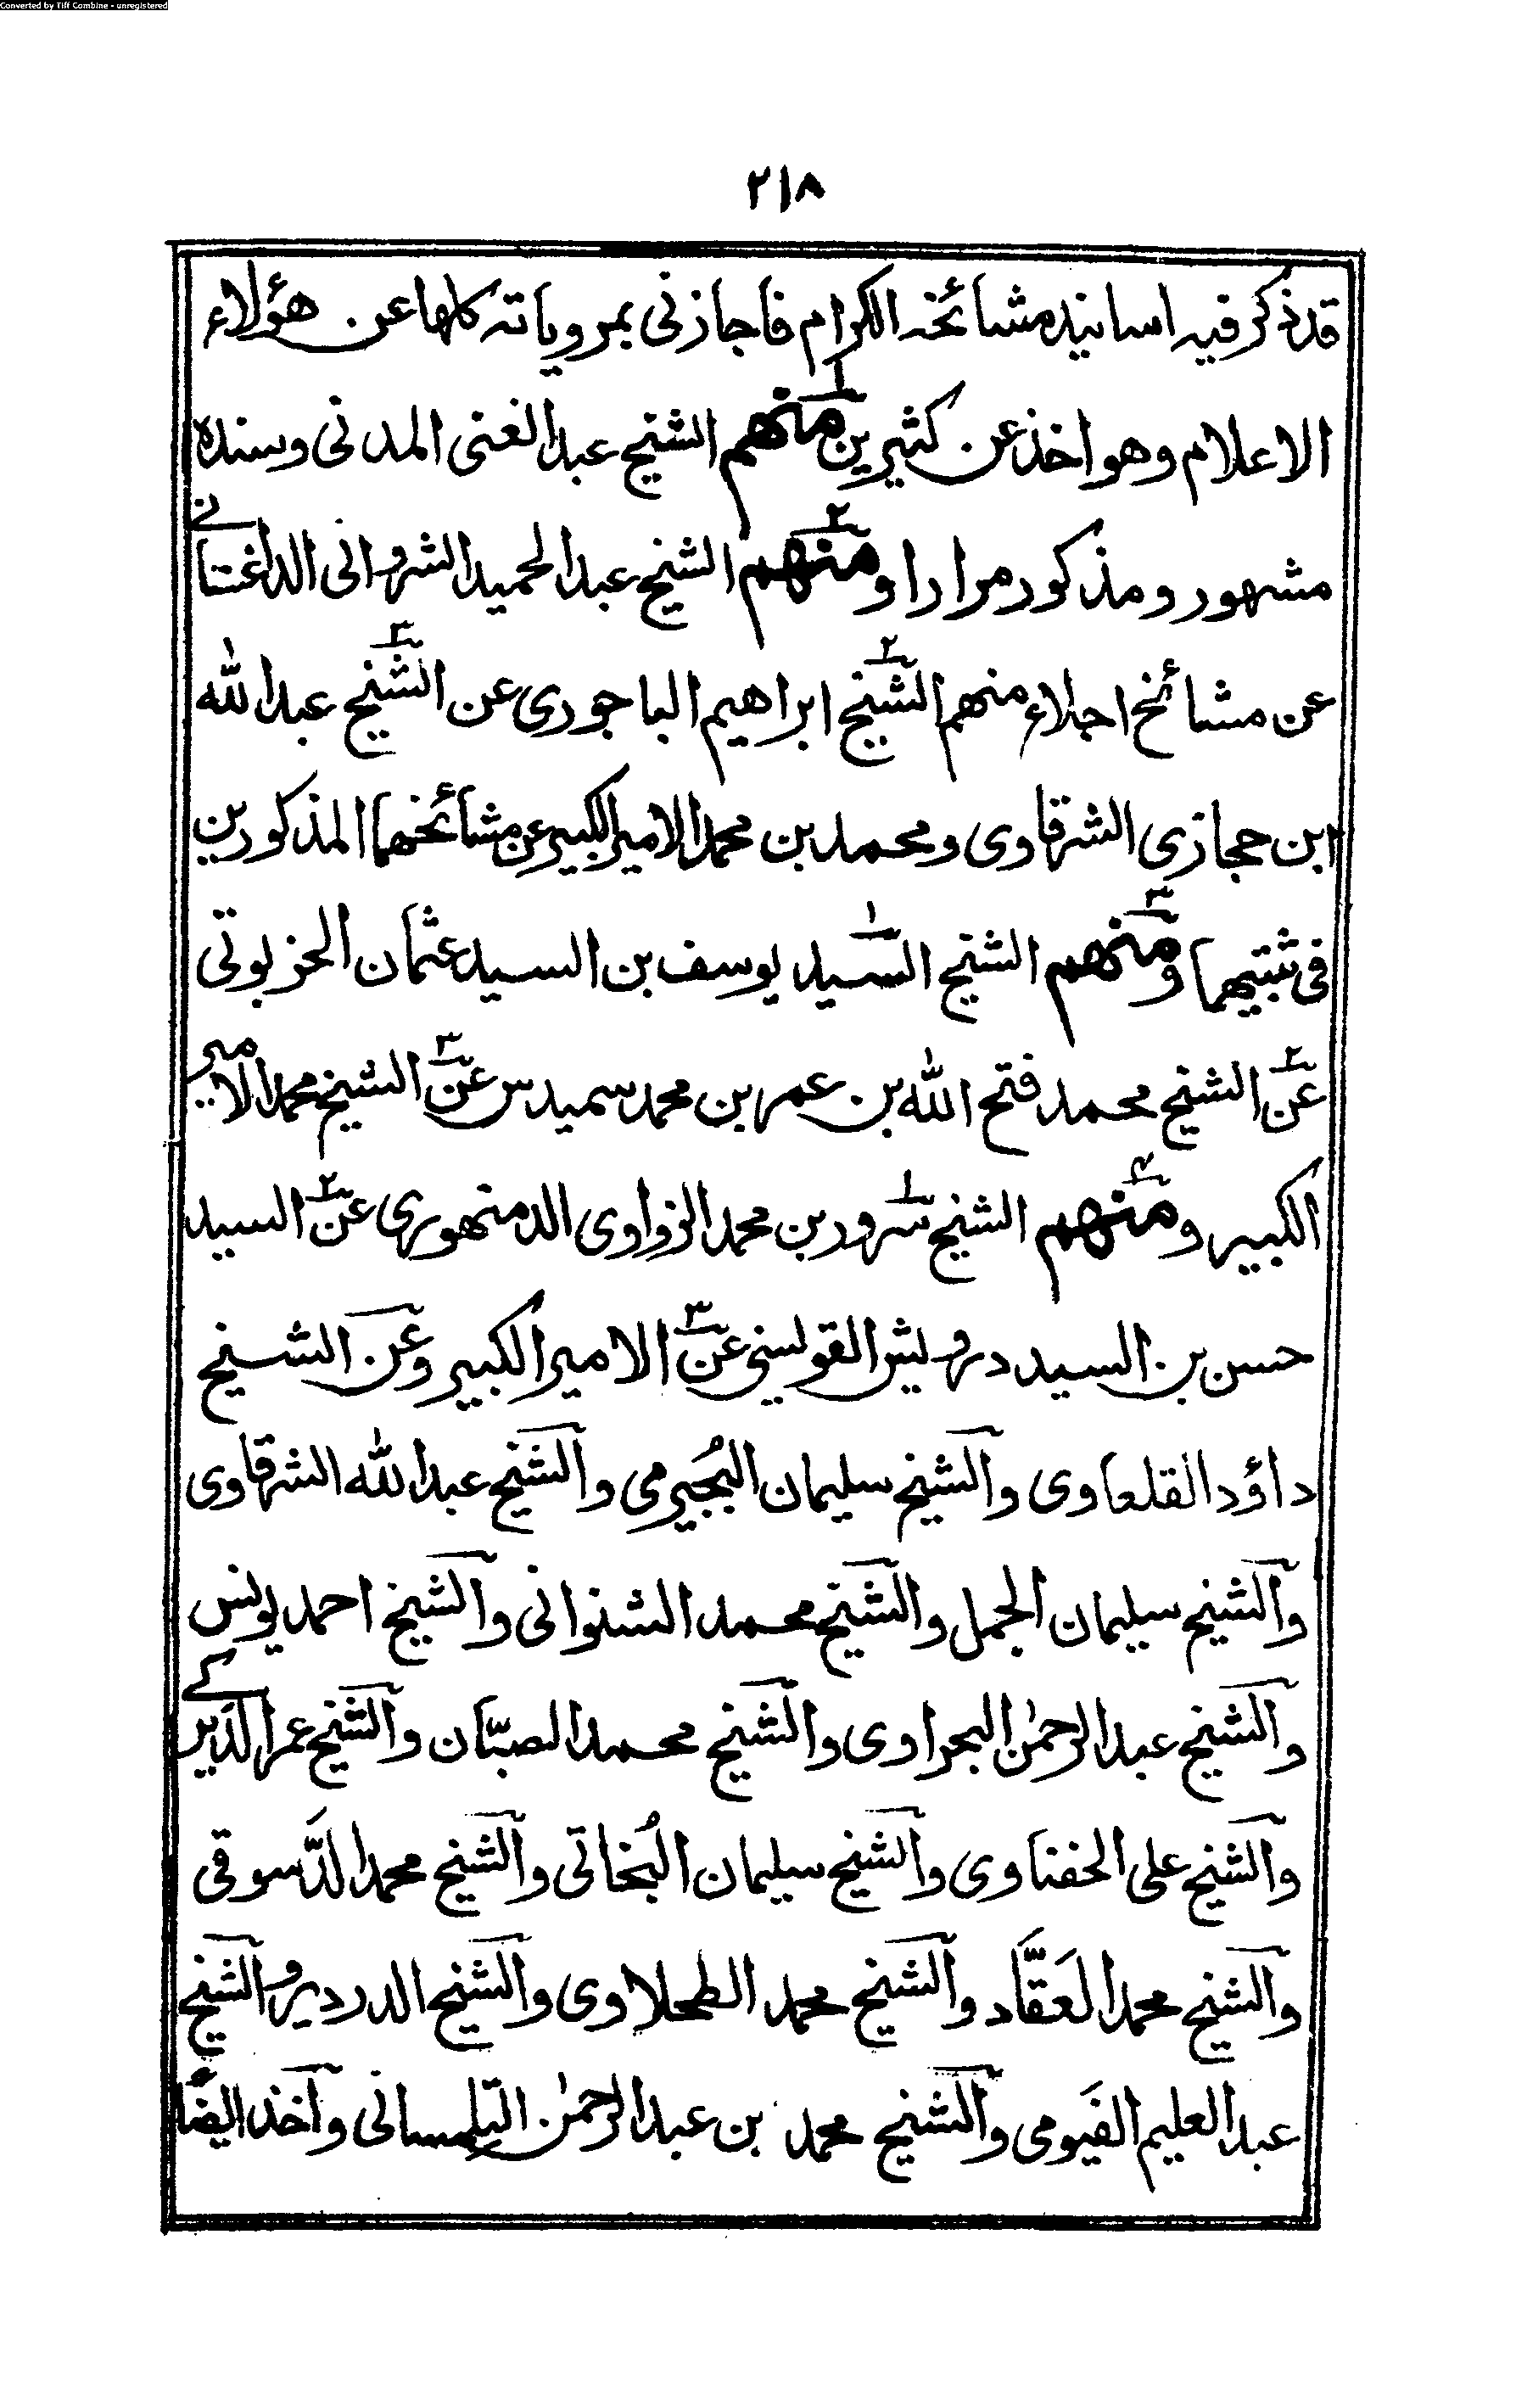 Converted by Tiff Combine - unregistered
٢١٨
قد ذكر فيه اسانيد مشائخه الكرام فاجازنى بمروياته كلها عن هؤلاء
الاعلام وهو اخذ عن كثيرين منهم الشيخ عبد الغنى المدنى وسنده
مشهور ومذكور مرارا ومنهم الشيخ عبد الحميد الشروانى الداغستانے
عن مشائخ اجلاء منهم الشيخ ابراهيم الباجورى عن الشيخ عبد الله
ابن حجازى الشرقاوى ومحمد بن محمد الامير الكبير عن مشائخهما المذكورين
فى ثبتيهما ومنهم الشيخ السيد يوسف بن السيد عثمان الخربوتى
عن الشيخ محمد فتح الله بن عمر بن محمد سميدس عن الشيخ محمد الامير
الكبير ومنهم الشيخ سرور بن محمد الزواوى الدمنهورى عن السيد
حسن بن السيد درويش القويسنى عن الامير الكبير وعن الشيخ
داؤد القلعاوى والشيخ سليمان البُجيرمى والشيخ عبد الله الشرقاوى
والشيخ سليمان الجمل والشيخ محمد الشنوانى والشيخ احمد يونس
والشيخ عبد الرحمٰن البحراوى والشيخ محمد الصبّان والشيخ عمر الديركے
والشيخ على الحفناوى والشيخ سليمان البُخاتى والشيخ محمد الدَّسوقى
والشيخ محمد العَقَّاد والشيخ محمد الطحلاوى والشيخ الدردير والشيخ
عبد العليم الفَيومى والشيخ محمد بن عبد الرحمٰن التلمسانى وآخذ ايضًا